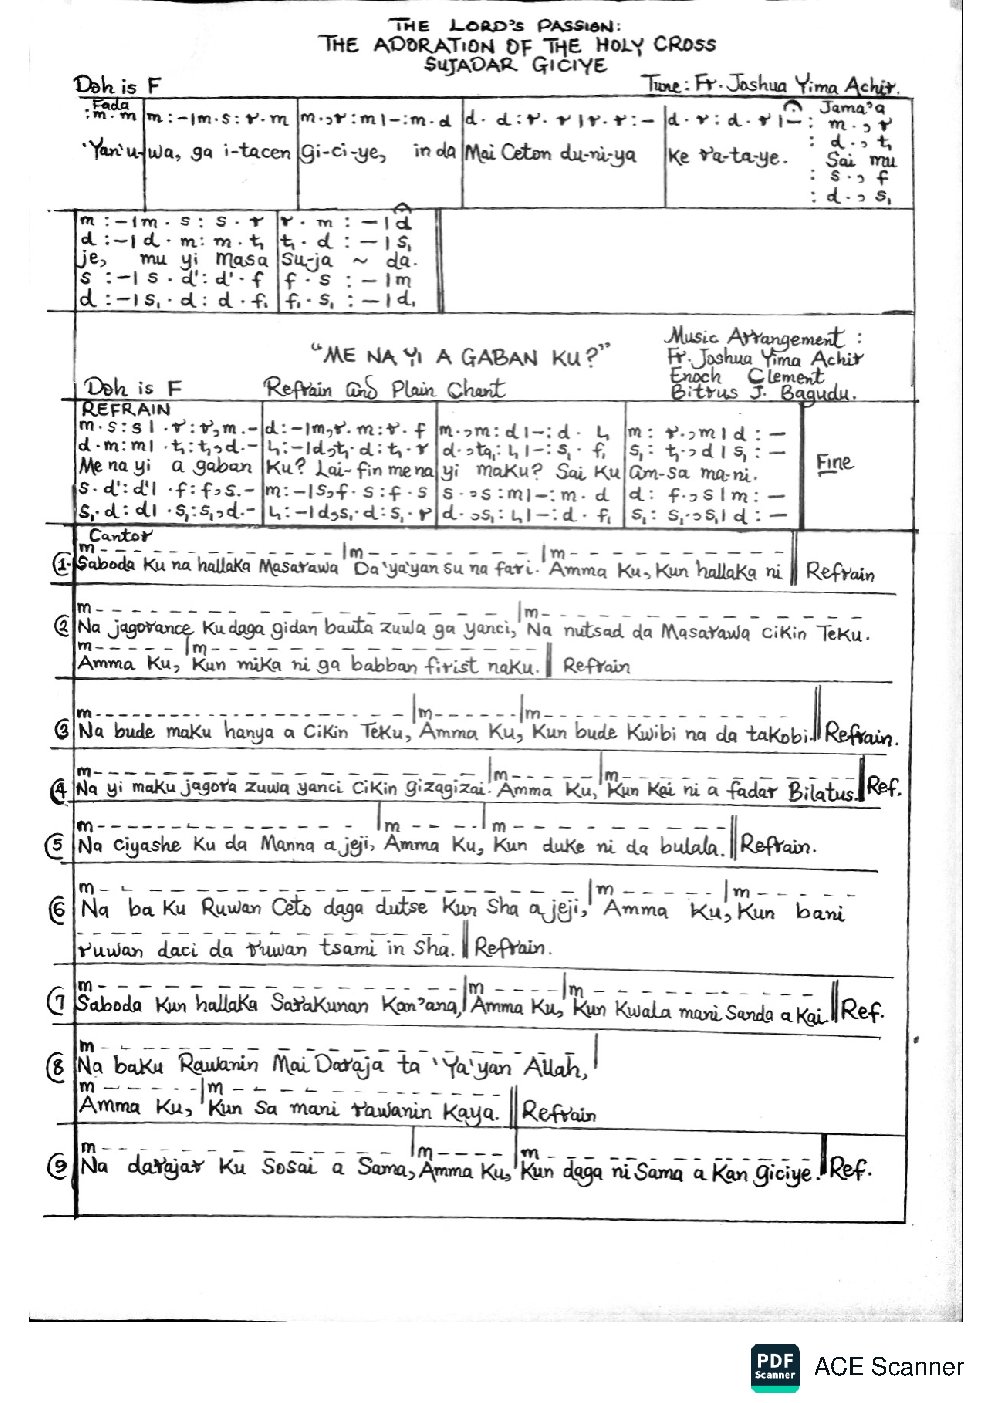 THE LORD'S PASSION:
THE ADORATION OF THE HOLY CROSS
SUJADAR GICIYE
Doh is F Tune: Fr. Joshua Yima Achir.
Fada Jama'a
:m·m |m:-|m·s:r·m |m·,r:m|-:m·d |d·d:r·r|r·r:- |d·r:d·r|-: m·,r
: d·,t₁
'Yan'u-wa, ga i-tacen Gi-ci-ye, in da Mai Ceton du-ni-ya Ke ra-ta-ye. Sai mu
: s·,f
: d·,s₁
m:-|m·s:s·r |r·m:-|d
d:-|d·m:m·t₁ |t₁·d:-|s₁
je, mu yi masa su-ja ~ da.
s:-|s·d':d'·f |f·s:-|m
d:-|s₁·d:d·f₁ |f₁·s₁:-|d₁
Music Arrangement :
"ME NA YI A GABAN KU?" Fr. Joshua Yima Achir
Enoch Clement
Doh is F Refrain and Plain Chant Bitrus J. Bagudu.
REFRAIN
m·s:s|·r:r,m.- |d:-|m,r·m:r·f |m·,m:d|-:d·l₁ |m: r·,m|d:-
d·m:m|·t₁:t₁,d.- |l₁:-|d,t₁·d:t₁·r |d·,ta₁:l₁|-:s₁·f₁ |s₁: t₁·,d|s₁:-
Me na yi a gaban Ku? Lai-fin me na yi maku? Sai Ku am-sa ma-ni. Fine
s·d':d'|·f:f,s.- |m:-|s,f·s:f·s |s·,s:m|-:m·d |d: f·,s|m:-
s₁·d:d|·s₁:s₁,d.- |l₁:-|d,s₁·d:s₁·r |d·,s₁:l₁|-:d·f₁ |s₁: s₁·,s₁|d:-
Cantor
m- - - - - - - - - - - - - |m- - - - - - - - - |m- - - - - - - - -
① Saboda Ku na hallaka Masarawa Da'ya'yan su na fari. Amma Ku, Kun hallaka ni || Refrain
m- - - - - - - - - - - - - - - - |m- - - - - - - - - - - - -
② Na jagorance Ku daga gidan bauta zuwa ga yanci, Na nutsad da Masarawa cikin Teku.
m- - - - - |m- - - - - - - - - - - - - -
Amma Ku, Kun mika ni ga babban firist naku. || Refrain
m- - - - - - - - - - - - - - - - |m- - - - - |m- - - - - - - - - - - - -
③ Na bude maku hanya a Cikin Teku, Amma Ku, Kun bude Kwibi na da takobi. || Refrain.
m- - - - - - - - - - - - - - - - |m- - - - - |m- - - - - - - - - - -
④ Na yi maku jagora zuwa yanci cikin gizagizai. Amma Ku, Kun Kai ni a fadar Bilatus. || Ref.
m- - - - - - - - - - - - - |m- - - - |m- - - - - - - - -
⑤ Na Ciyashe Ku da Manna a jeji, Amma Ku, Kun duke ni da bulala. || Refrain.
m- - - - - - - - - - - - - - - - - |m- - - - - |m- - - - -
⑥ Na ba Ku Ruwan Ceto daga dutse Kun Sha a jeji, Amma Ku, Kun bani
ruwan daci da ruwan tsami in Sha. || Refrain.
m- - - - - - - - - - - - - - |m- - - - |m- - - - - - - - - -
⑦ Saboda Kun hallaka Sarakunan Kan'ana, Amma Ku, Kun Kwala mani Sanda a Kai. || Ref.
m- - - - - - - - - - - - - - - - - |
⑧ Na baku Rawanin Mai Daraja ta 'Ya'yan Allah,
m- - - - - |m- - - - - - - - - -
Amma Ku, Kun Sa mani rawanin Kaya. || Refrain
m- - - - - - - - - - - - - |m- - - - |m- - - - - - - - - - -
⑨ Na darajar Ku Sosai a Sama, Amma Ku, Kun daga ni Sama a Kan giciye. || Ref.
PDF
Scanner ACE Scanner